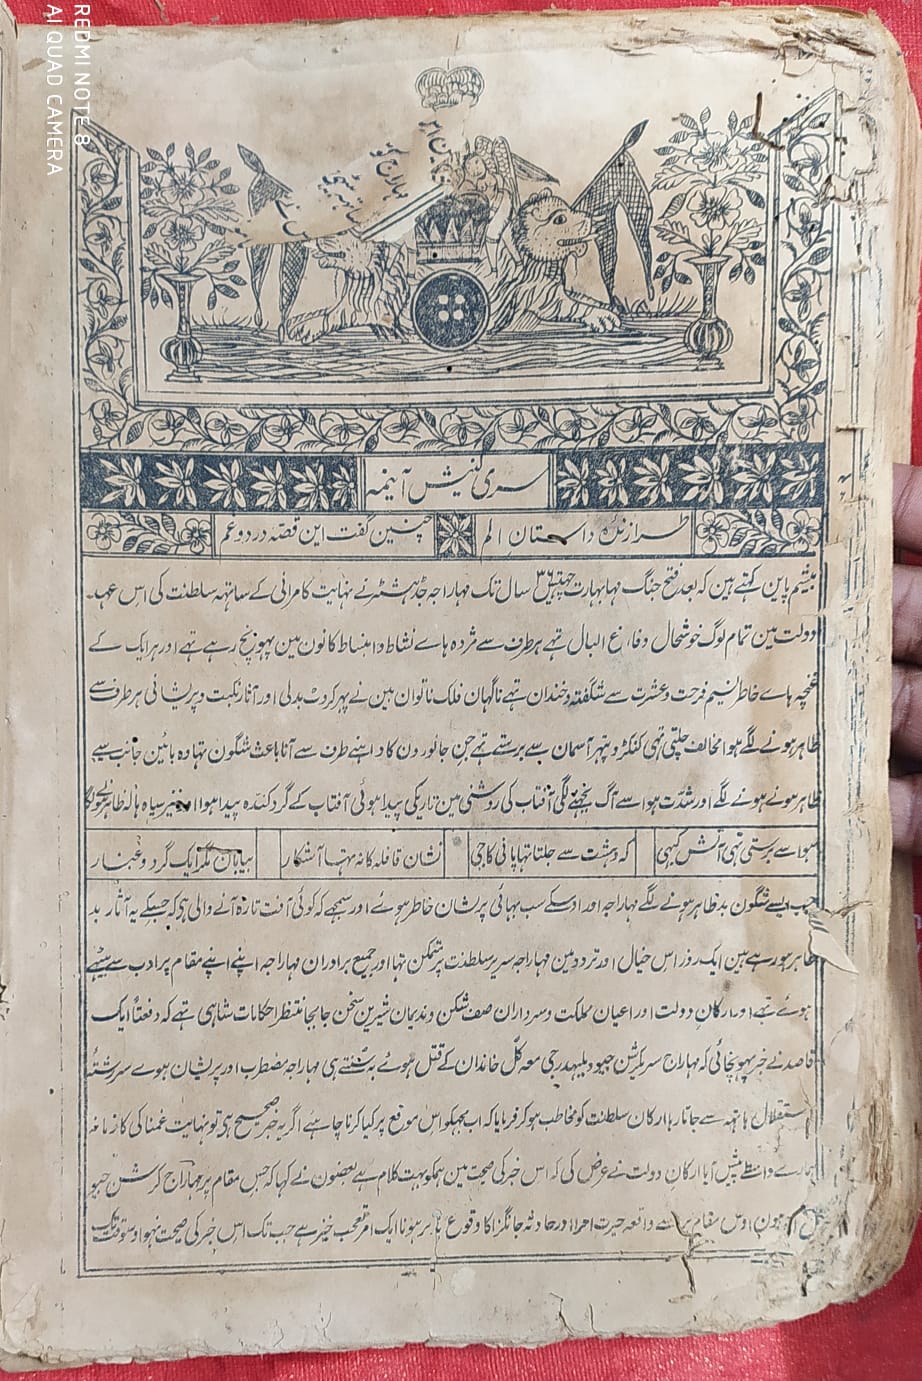 REDMI NOTE 8
AI QUAD CAMERA
مہاراج
سری گنیش آینمہ
طرازندہ داستان الم چنین گفت این قصہ درد و غم
بیشم پاین کہتے ہین کہ بعد فتح جنگ مہابہارت چہتیس ۳۶ سال تک مہاراجہ جڈہشٹر نے نہایت کامرانی کے ساتہہ سلطنت کی اس عہد
دولت مین تمام لوگ خوشحال و فارغ البال تہے ہر طرف سے مژدہ ہاے نشاط و انبساط کانون مین پہونچ رہے تہے اور ہر ایک کے
غنچہ ہاے خاطر نسیم فرحت و عشرت سے شگفتہ و خندان تہے ناگہان فلک ناتوان بین نے پہر کروٹ بدلی اور آثار نکبت و پریشانی ہر طرف سے
ظاہر ہونے لگے ہوا مخالف چلتی تہی کنکر و پتہر آسمان سے برستے تہے جن جانورون کا داہنے طرف سے آنا باعث شگون تہا وہ بائین جانب سے
ظاہر ہونے ہونے لگے اور شدت ہوا سے آگ بجہنے لگی آفتاب کی روشنی مین تاریکی پیدا ہوئی آفتاب کے گرد کندہ پیدا ہوا سیاہ ہالہ ظاہر
ہوا سے برستی تہی آتش کبہی کہ دہشت سے جلتا تہا پانی کا جی نشان قافلہ کا نہ تہا آشکار بیابان مگر ایک گرد و غبار
جب ایسے شگون بد ظاہر ہونے لگے مہاراجہ اور اوسکے سب بہائی پرشان خاطر ہوئے اور سمجہے کہ کوئی آفت تازہ آنے والی ہی کہ جسکے یہ آثار بد
ظاہر ہو رہے ہین ایک روز اس خیال اور تردد مین مہاراجہ سریر سلطنت پر متمکن تہا اور جمیع برادران مہاراجہ اپنے اپنے مقام پر ادب سے بیٹہے
ہوئے تہے اور ارکان دولت اور اعیان مملکت و سرداران صف شکن و ندیمان شیرین سخن جابجا منتظر احکامات شاہی تہے کہ دفعتاً ایک
قاصد نے خبر پہونچائی کہ مہاراج سریکرشن جیو و بلبہدر جی معہ کل خاندان کے قتل ہوئے بہ سنتے ہی مہاراجہ مضطرب اور پریشان ہوے سررشتہ
استقلال ہاتہہ سے جاتا رہا ارکان سلطنت کو مخاطب ہو کر فرمایا کہ اب مجہکو اس موقع پر کیا کرنا چاہیے اگر یہ خبر صحیح ہی تو نہایت غمناکی کا زمانہ
ہمارے واسطے پیش آیا ارکان دولت نے عرض کی کہ اس خبر کی صحت مین ہمکو بہت کلام ہے بعضون نے کہا کہ جس مقام پر مہاراج کرشن جیو
ہون اوس مقام پر واقعہ حیرت افزا اور حادثہ جانگزا کا وقوع ہونا ایک امر تعجب خیز ہے جب تک اس خبر کی صحت نہو اوسوقت تک